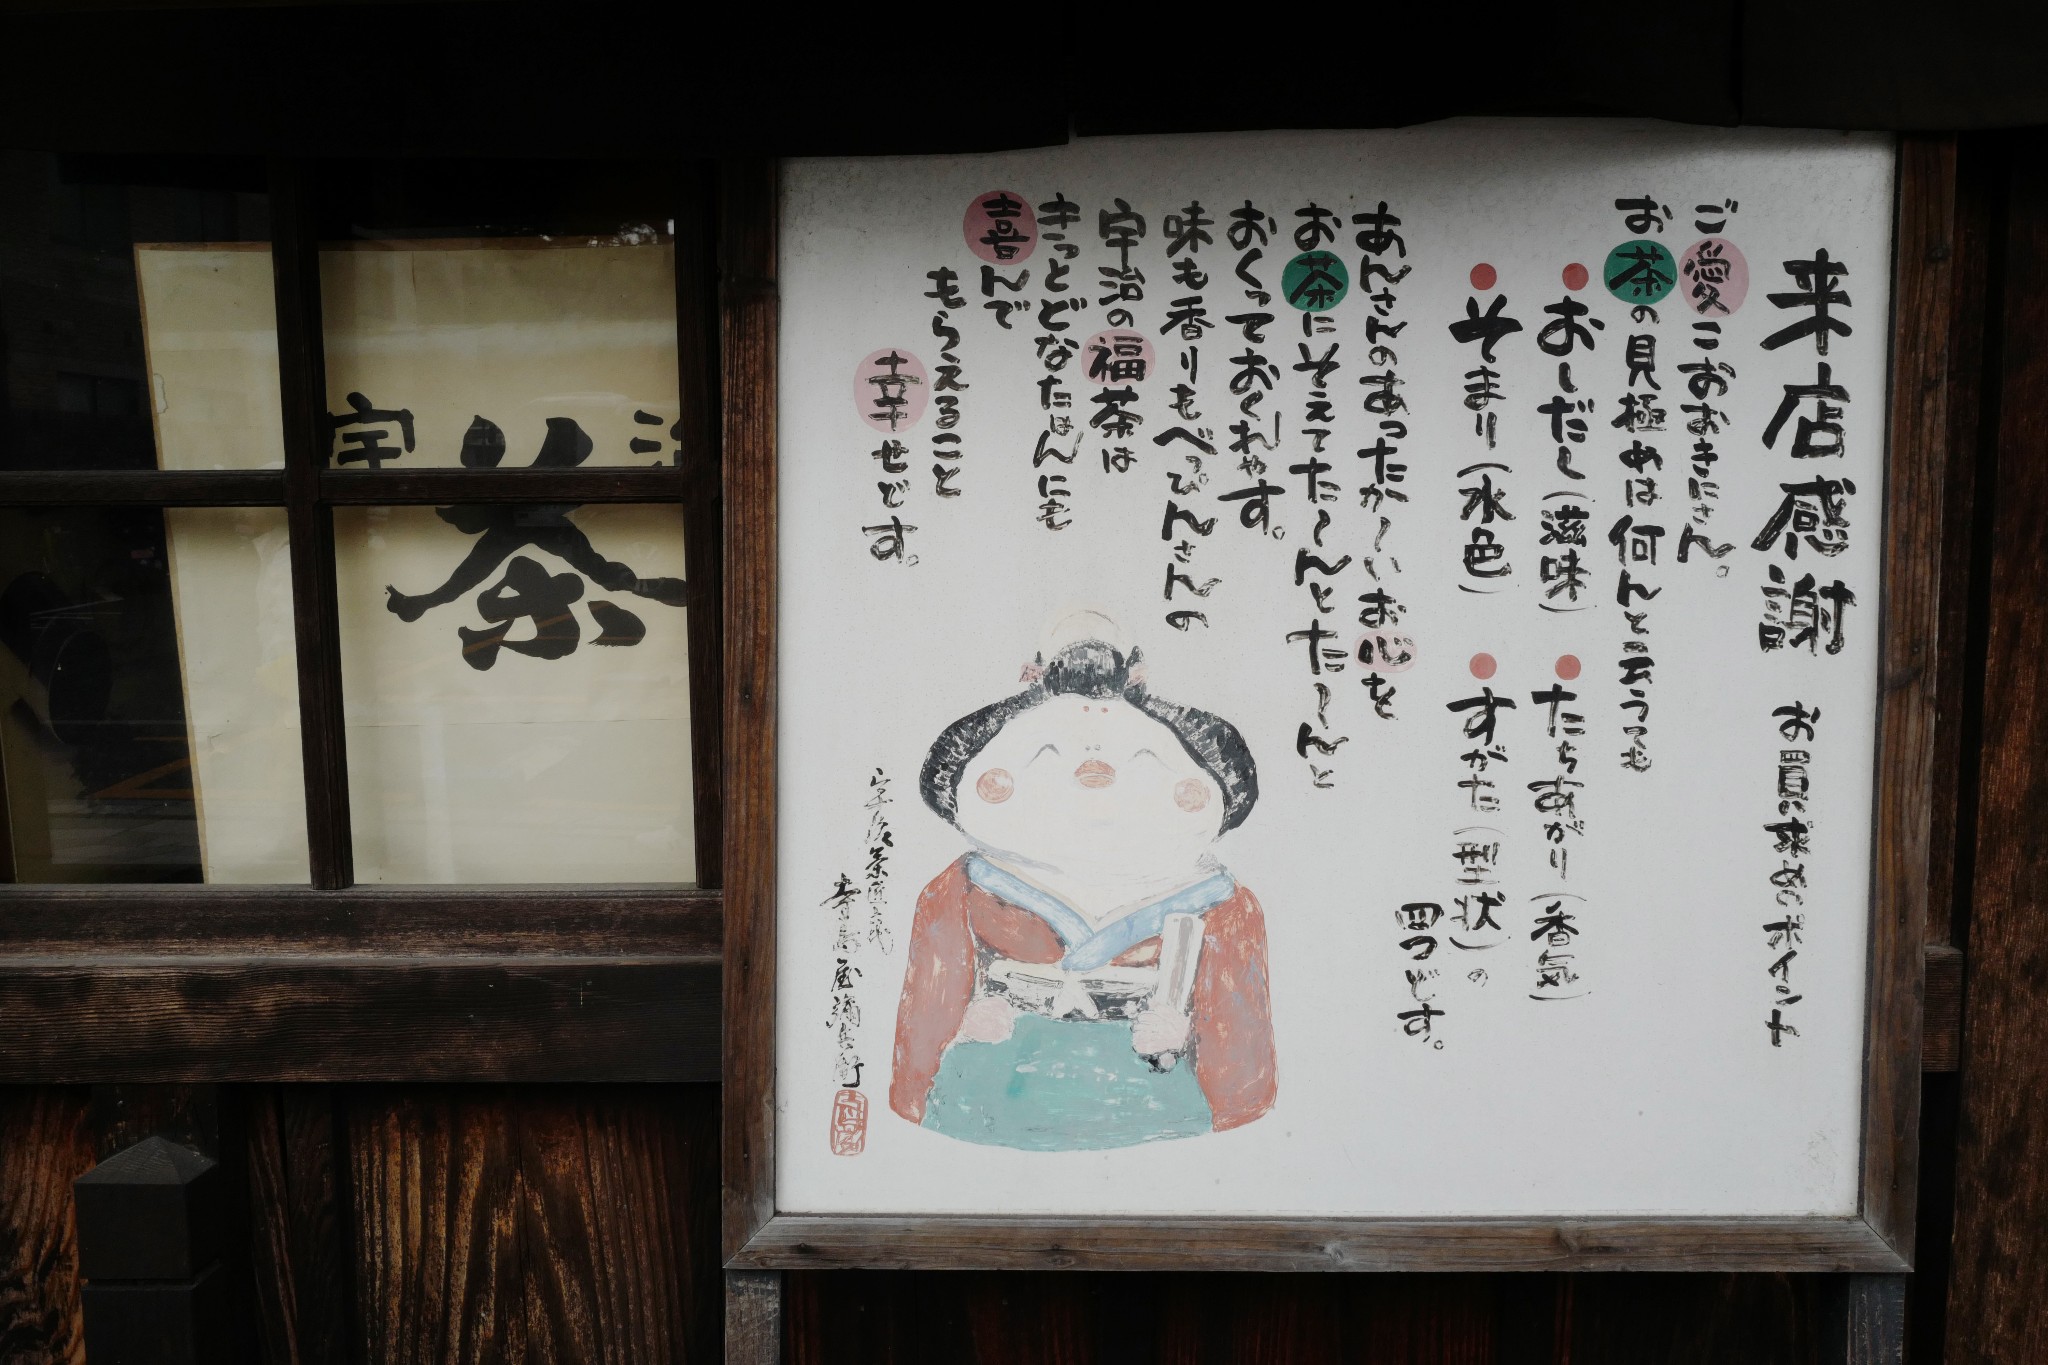 来店感謝 お買い求めのポイント
ご愛こおおきにさん。
お茶の見極めは何んと云うても
●おしだし(滋味) ●たちあがり(香気)
●そまり(水色) ●すがた(型状)の
四つどす。
あんさんのあったか〜いお心を
お茶にそえてた〜んとた〜んと
おくっておくれやす。
味も香りもべっぴんさんの
宇治の福茶は
きっとどなたはんにも
喜んで
もらえること
幸せどす。
宇治茶匠
屋弥兵衛
宇治
茶